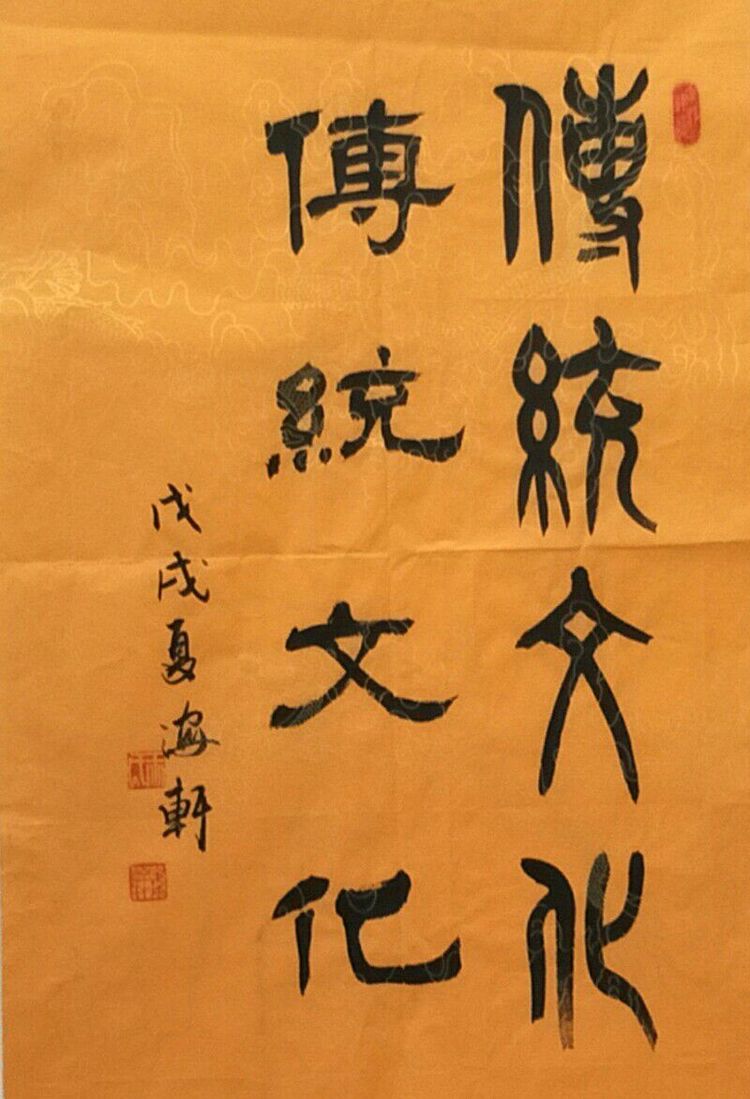 傳統文化
傳統文化
戊戌夏海軒